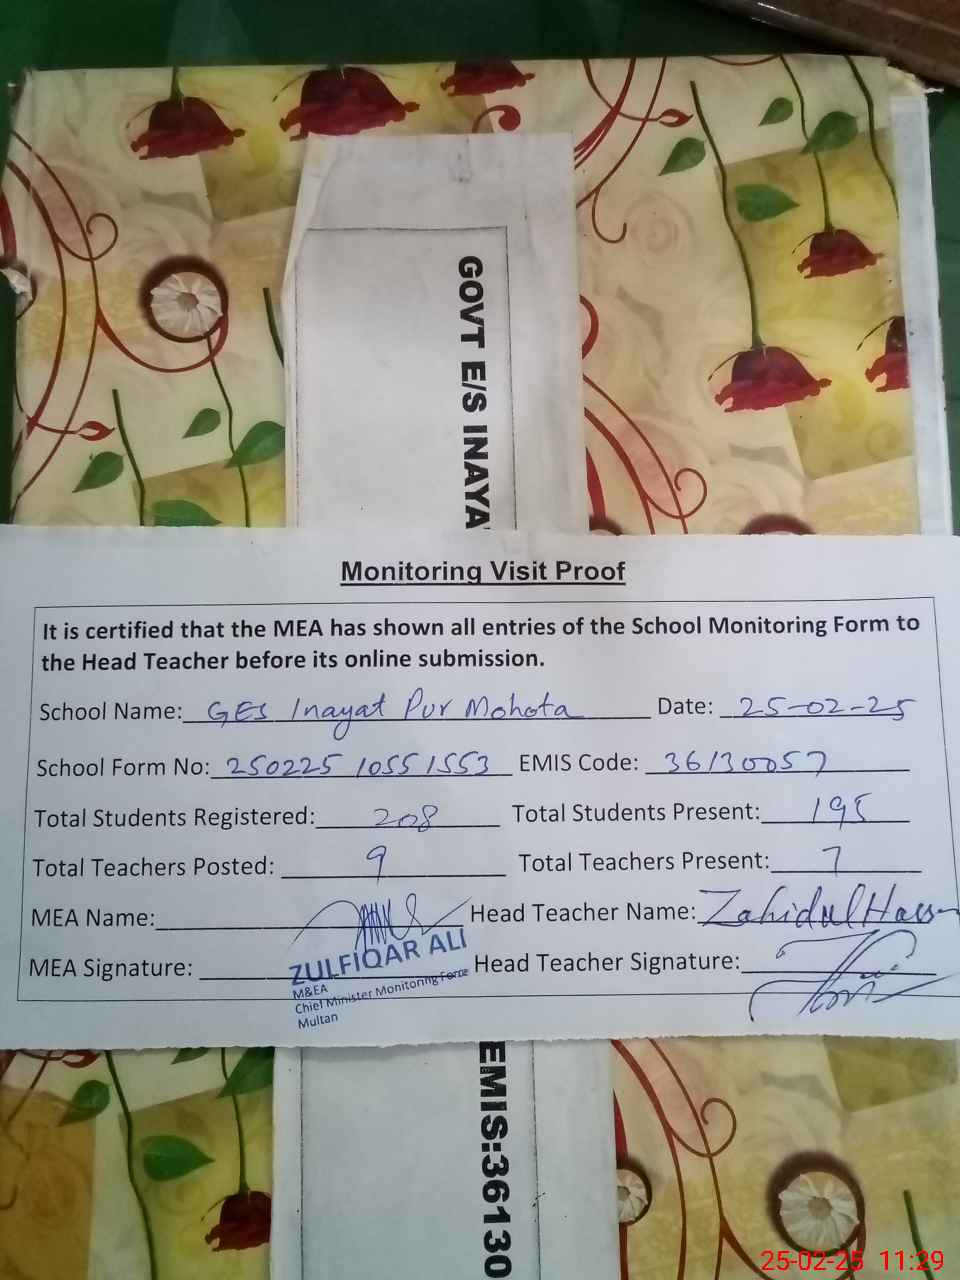 GOVT E/S INAYA
Monitoring Visit Proof
It is certified that the MEA has shown all entries of the School Monitoring Form to
the Head Teacher before its online submission.
School Name: GES Inayat Pur Mohota Date: 25-02-25
School Form No: 250225 10551553 EMIS Code: 36130057
Total Students Registered: 208 Total Students Present: 195
Total Teachers Posted: 9 Total Teachers Present: 7
MEA Name: Head Teacher Name: Zahidul Hassn
MEA Signature: Head Teacher Signature:
ZULFIQAR ALI
M&EA
Chief Minister Monitoring Force
Multan
EMIS:36130
25-02-25 11:29